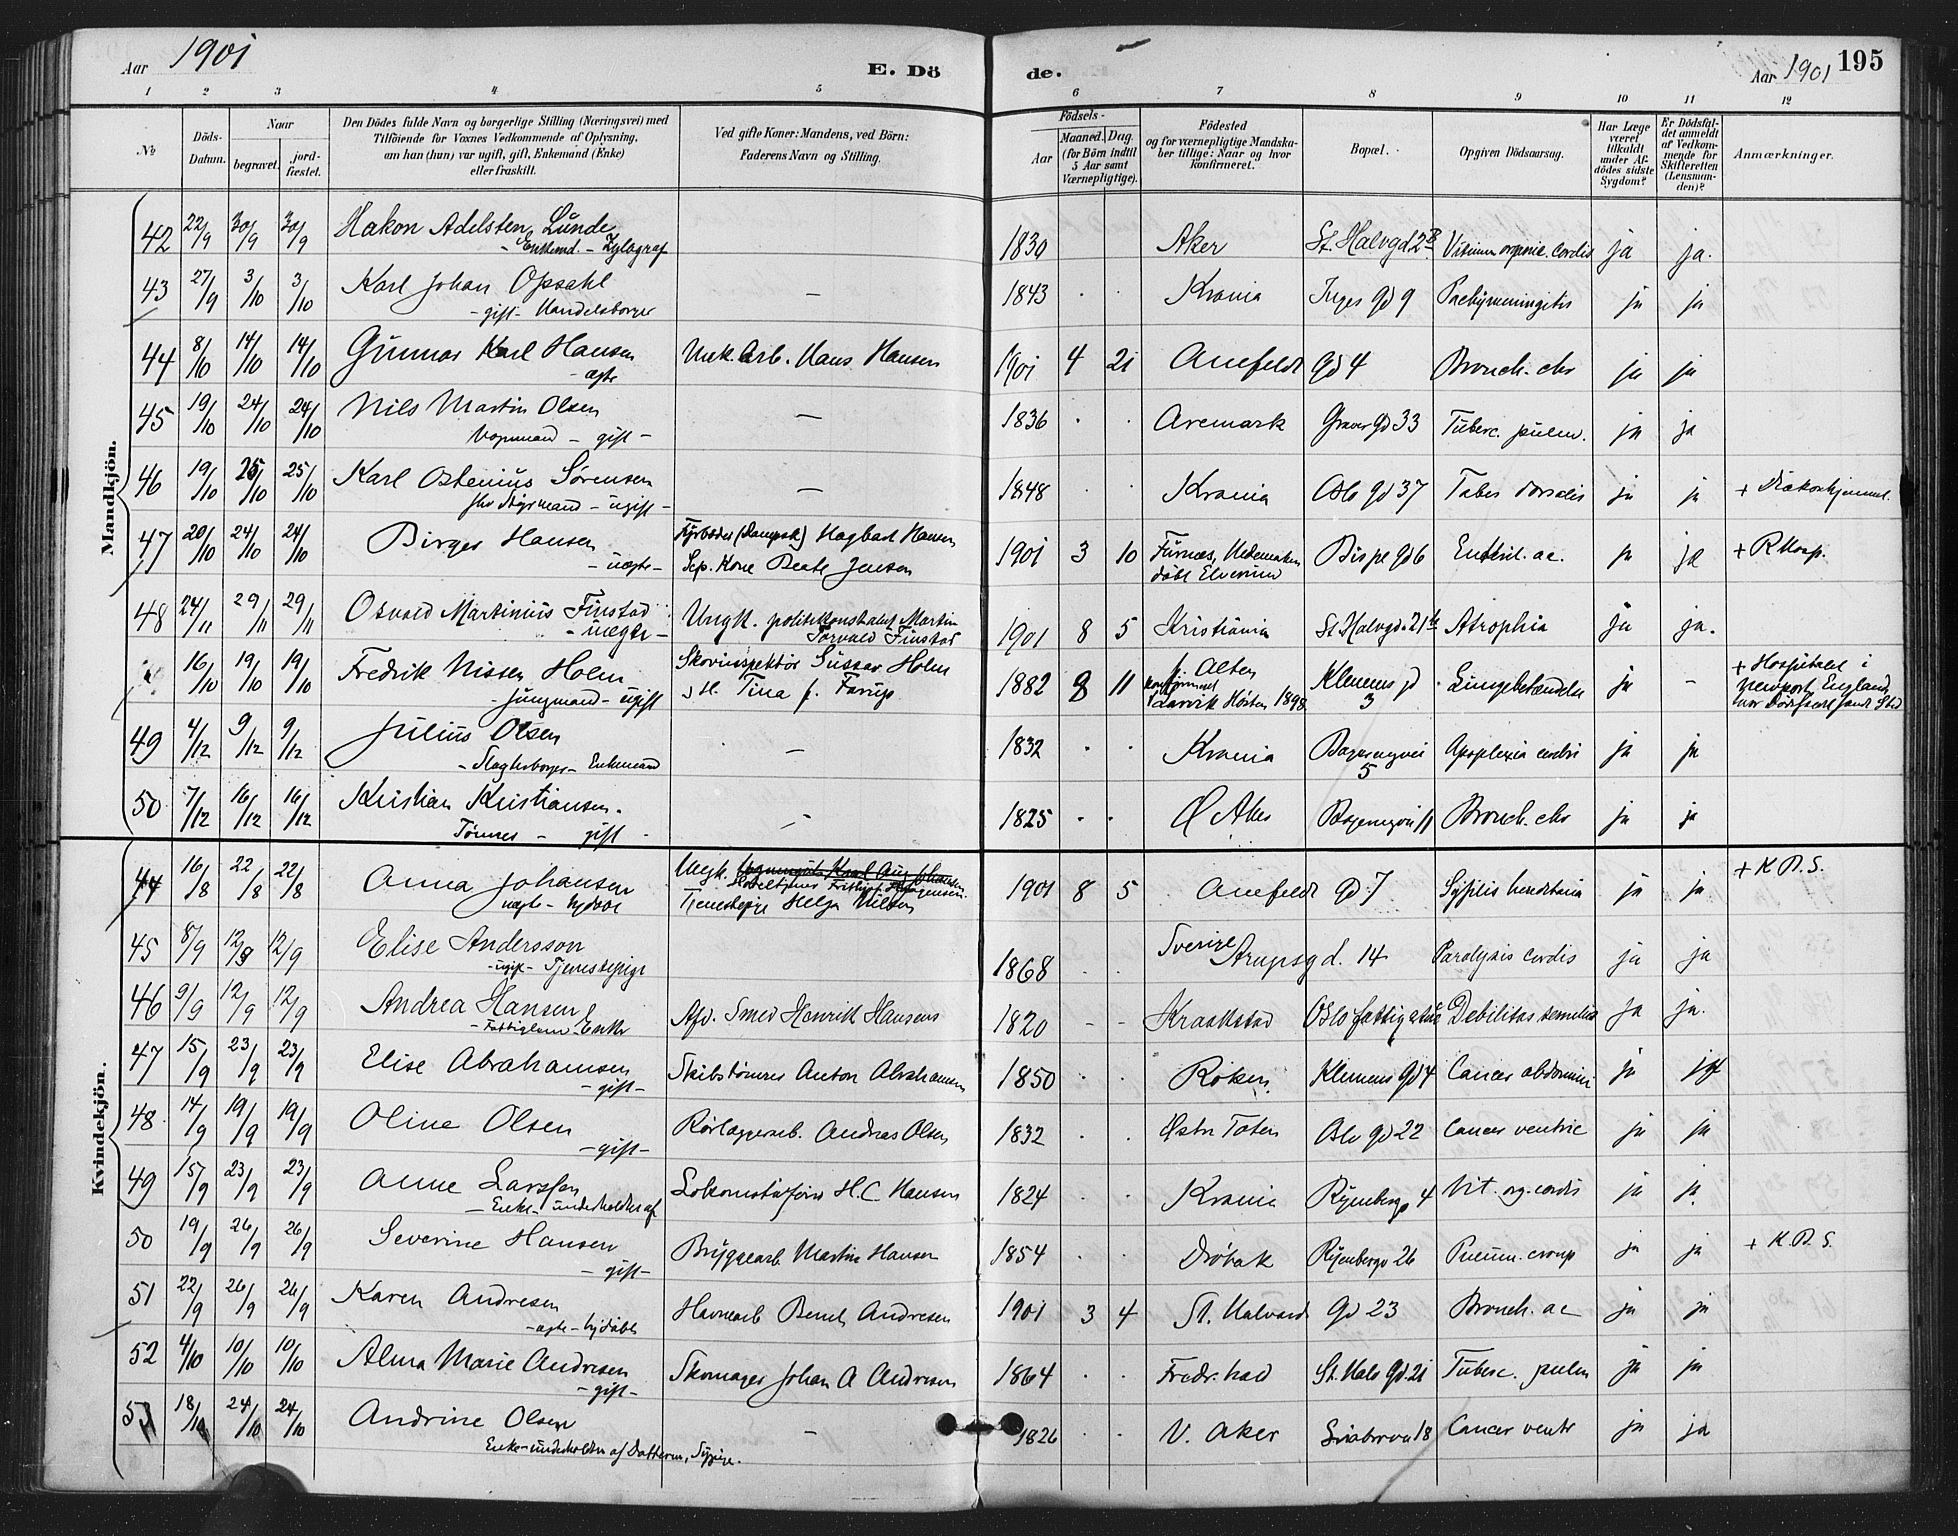 Aar 1901 E. Dö de. Aar 1901 195
1 2 3 4 5 6 7 8 9 10 11 12
No Döds-Datum. Naar begravet. jordfæstet. Den Dödes fulde Navn og borgerlige Stilling (Næringsvei) med Tilföiende for Voxnes Vedkommende af Oplysning, om han (hun) var ugift, gift, Enkemand (Enke) eller fraskilt. Ved gifte Koner: Mandens, ved Börn: Faderens Navn og Stilling. Födsels- Aar Maaned. Dag. (for Børn indtil 5 Aar samt Værnepligtige). Födested og for værnepligtige Mandskaber tillige: Naar og hvor konfirmeret. Bopæl. Opgiven Dödsaarsag. Har Læge været tilkaldt under Afdödes sidste Sygdom? Er Dödsfaldet anmeldt af Vedkommende for Skifteretten (Lensmanden)? Anmærkninger.
Mandkjön.
42 22/9 30/9 30/9 Hakon Adelsten Lunde 1830 Aker St. Halvgd 2B Vitium organic. cordis ja ja.
- Enkemd. - Xylograf
43 27/9 3/10 3/10 Karl Johan Opsahl — 1843 Krania Inges gd 9 Pachymeningitis ja ja
- gift - Handelsborger
44 8/10 14/10 14/10 Gunnar Karl Hansen Mek. Arb. Hans Hansen 1901 4 21 Anefeldt gd 4 Bronch. chr ja ja
- ægte
45 19/10 24/10 24/10 Nils Martin Olsen — 1836 Aremark Graver gd 33 Tuberc. pulm. ja ja
Vognmand - gift -
46 19/10 25/10 25/10 Karl Ostenius Sørensen — 1848 Krania Oslo gd 37 Tabes dorsalis ja ja + Diakonhjemmet
fhv Styrmand - ugift -
47 20/10 24/10 24/10 Birger Hansen Fyrbøder (Dampsk) Hagbart Hansen 1901 3 10 Furnæs, Hedemarken Bispe gd 6 Enterit. ac. ja ja + R Hosp.
- uægte - Sep. Kone Beate Jensen døbt Elverum
48 24/11 29/11 29/11 Osvald Martinius Finstad Ungk. politikonstabel Martin 1901 8 5 Kristiania St. Halvgd. 21 Atrophia ja ja.
- uægte - Torvald Finstad
16/10 19/10 19/10 Fredrik Nissen Holm Skovinspektör Gustav Holm 1882 9 11 f. Alten Klemens gd 3 Lungebetændelse ja - + Hospitalet i
- Jungmand - ugift - H. Tina f. Farup konfirmeret Larvik Høsten 1898 Newport, England hvor Dødsfaldet fandt Sted
49 4/12 9/12 9/12 Julius Olsen — 1832 Krania 5 Apoplexia cerebri ja ja
- Slagterborger - Enkemand
50 7/12 16/12 16/12 Kristian Kristiansen — 1825 Ø Aker 11 Bronch. chr ja ja
Tømmer - gift -
Kvindekjön.
44 16/8 22/8 22/8 Anna Johansen Ungk. 1901 8 5 Anefeldt gd. 7 Syfilis hereditaria ja ja + K. D. S.
uægte - hjdøbt Tjenestepige Helga Nilsen
45 8/9 12/9 12/9 Elise Andersson 1868 Sverige Arupsgd. 14 Paralysis cordis ja ja
- ugift - Tjenestepige
46 9/9 12/9 12/9 Andrea Hansen Afd. Smed Henrik Hansens 1820 - - Kraakstad Oslo fattigstue Debilitas senilis ja ja.
- Fattiglem - Enke
47 15/9 23/9 23/9 Elise Abrahamsen Skibstømrer Anton Abrahamsen 1850 Röken Klemens gd 4 Cancer abdomini ja ja
- gift -
48 14/9 19/9 19/9 Oline Olsen Rörlæggerarb. Andreas Olsen 1832 Østre Toten Oslo gd 22 Cancer ventric ja ja
- gift -
49 15/9 23/9 23/9 Anne Larssen Lokomotivfører H. C Hansen 1824 Krania Ryenbergv 4 Vit. org. cordis ja ja
- Enke - underholdtes af
50 19/9 26/9 26/9 Severine Hansen Bryggearb Martin Hansen 1854 Drøbak Ryenbergv 26 Pneum. croup ja ja + K. D. S.
- gift -
51 22/9 26/9 26/9 Karen Andresen Havnearb Bernt Andresen 1901 3 4 St. Halvard Gd 23 Bronch. ac ja ja
- ægte - hjdøbt
52 4/10 10/10 10/10 Alma Marie Andresen Skomager Johan A Andresen 1864 Fredr.hald St. Halv gd. 21 Tuberc. pulm ja ja
- gift -
53 18/10 24/10 24/10 Andrine Olsen — 1826 V. Aker 18 Cancer ventr ja ja
Enke - underholdtes af Datteren, Sypige.